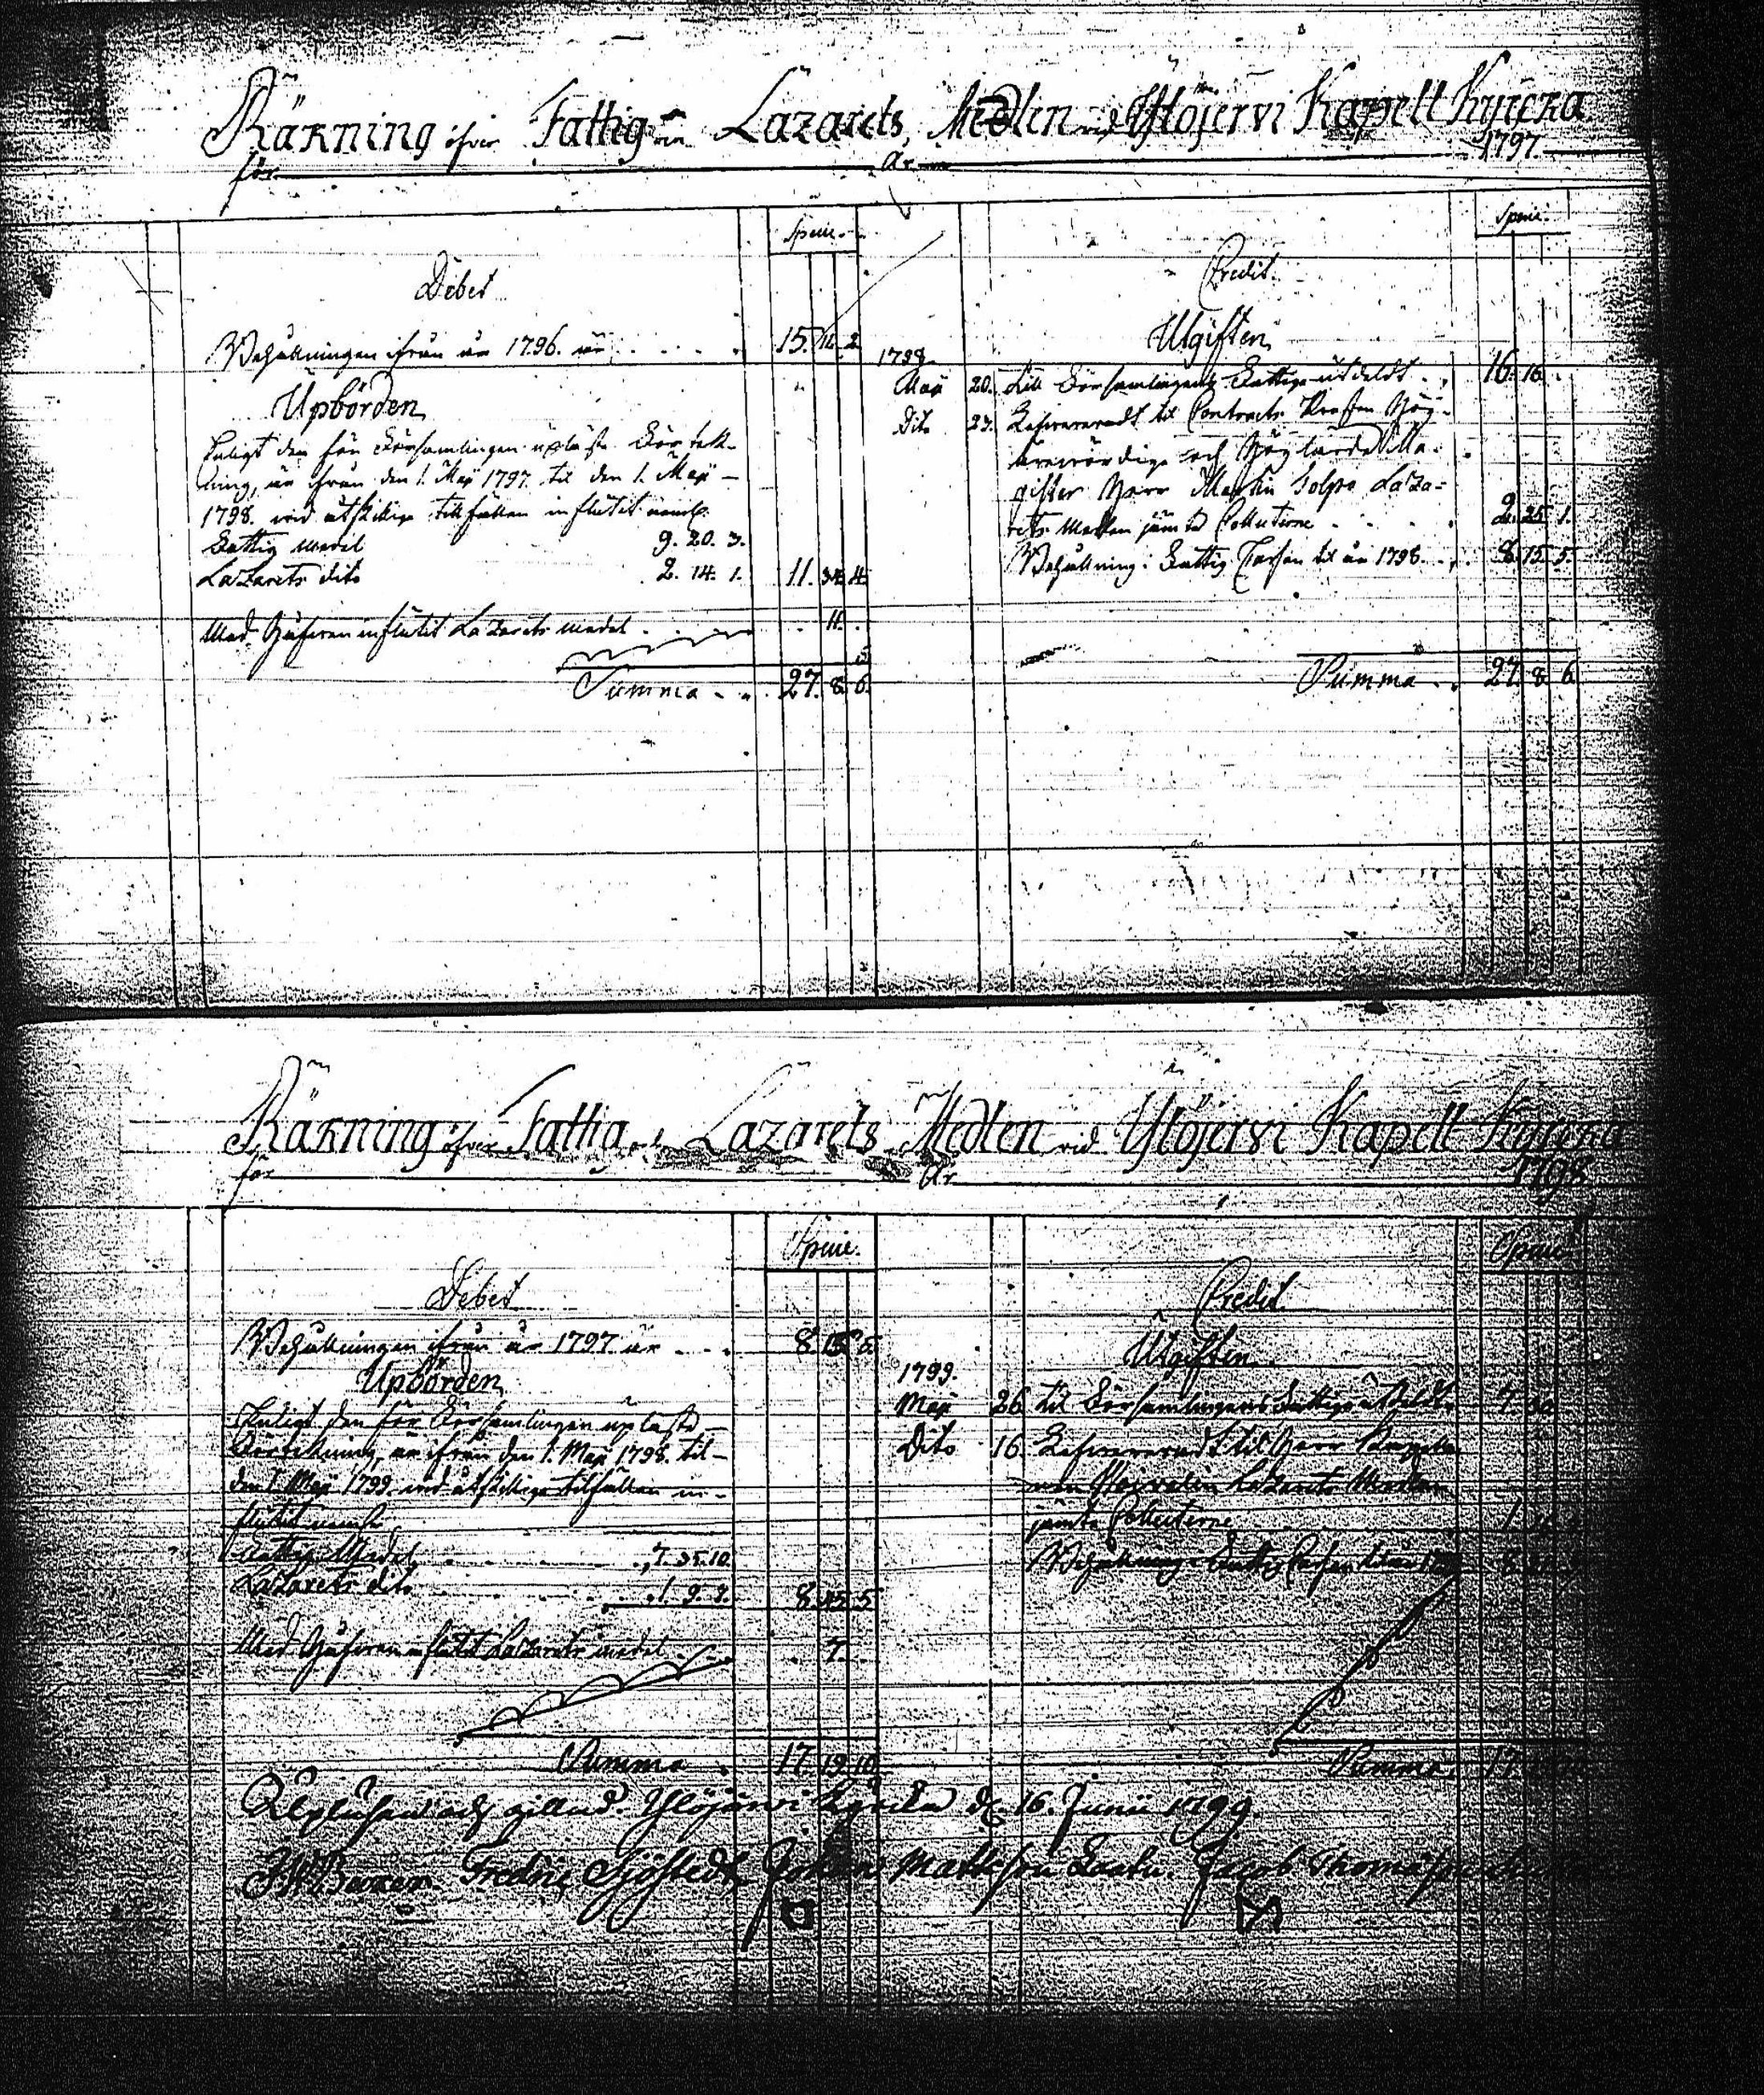 Räkning öfver Fattig och Lazarets Medlen vid Ylöjervi Kapell Kyrcka
för År 1797.
Specie.
Debet
Behållningen ifrån år 1796. är . . . . 15. 11. 2.
Upbörden
Enligt den för Församlingen uplästa Förtek-
ning, är ifrån den 1. Maji 1797. til den 1. Maji
1798. vid åtskillige tillfällen influtit nemli.
Fattig medel 9. 20. 3.
Lazarets dito 2. 14. 1. 11. 34. 4.
Med Håfven influtit Lazarets medel . . . . 11. .
Summa . . 27. 8. 6.
Specie.
Credit.
Utgiften
1798.
Maji 20. till Församlingens Fattige utdeldt . . 16. 16. .
Dito 27. Lefvereradt til Contracts Prosten Hög-
ärevördige och Höglärde Ma-
gister Herr Martin Tolpo Laza-
rets Medlen jämte Collecterne . . . . 2. 25. 1.
Behållning i Fattig Cassan til år 1798. . . 8. 15. 5.
Summa . . 27. 8. 6.
Räkning öfver Fattig och Lazarets Medlen vid Ylöjervi Kapell Kyrcka
för År 1798
Specie.
Debet
Behållningen ifrån år 1797 är . . . 8. 15. 5.
Upbörden
Enligt den för Församlingen uplästa
Förtekning, är ifrån den 1. Maji 1798. til
den 1. Maji 1799. vid åtskillige tilfällen in-
flutit nemli.
Fattig Medel . . . . 7. 35. 10.
Lazarets dito . . . . 1. 9. 7. 8. 45. 5
Med Håfven influtit Lazarets medel . . . 7.
Summa . 17. 19. 10.
Specie.
Credit.
Utgiften
1799.
Maji 26 til Församlingens Fattige utdeldt
Dito 16 Lefvereradt til Herr
Lazarets Medlen
jämte Collecterne
Behållning i Fattig Cassan til år
Summa. 17.
Upläsen och gillad. Ylöjärvi Kyrcka d. 16. Junii 1799.
Fredric Sjöstedt Johan Mattsson Jacob Thomasson